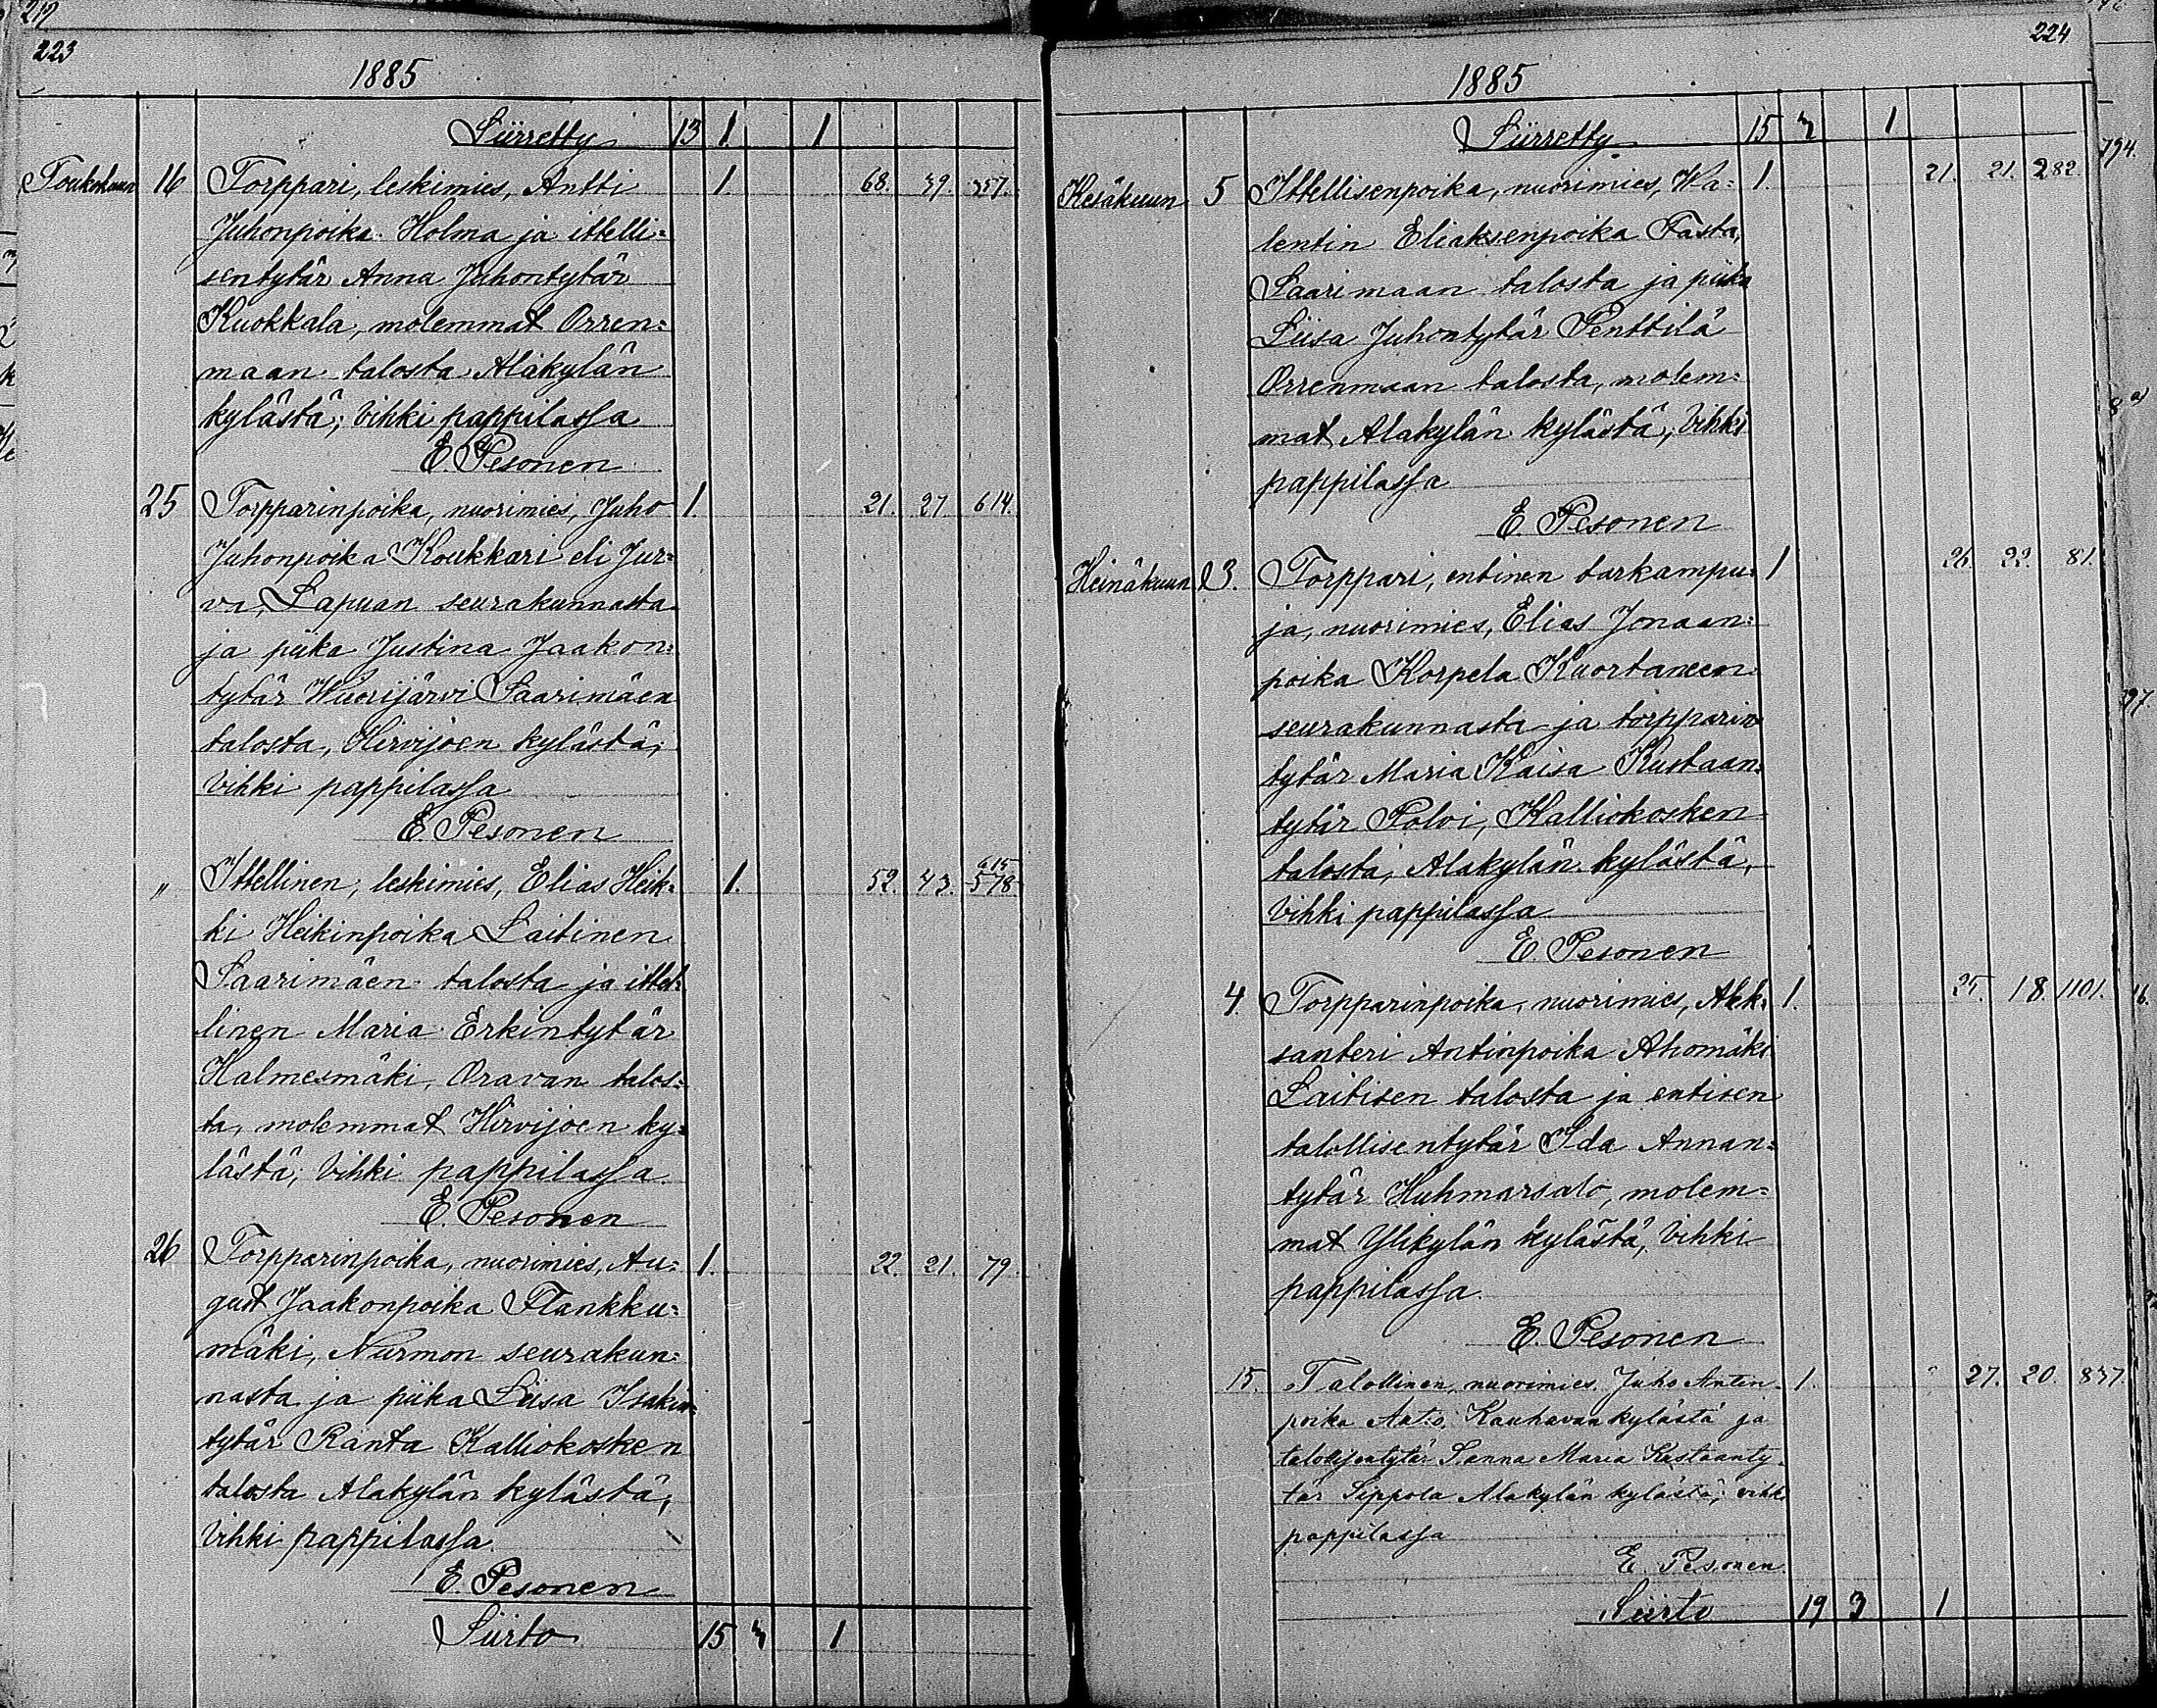 217
223
1885
Siirretty 13 1. 1
Toukokuun 16 Torppari, leskimies, Antti 1. 68. 39. 357.
Juhonpoika Holma ja ittelli=
sentytär Anna Juhontytär
Kuokkala, molemmat Orren=
maan talosta Alakylän
kylästä; Vihki pappilassa
E. Pesonen
25 Torpparinpoika, nuorimies, Juho 1. 21. 27 614.
Juhonpoika Koukkari eli Jur=
va, Lapuan seurakunnasta
ja piika Justina Jaakon=
tytär Wuorijärvi Saarimäen
talosta, Hirvijoen kylästä;
Vihki pappilassa
E. Pesonen
" Ittellinen, leskimies, Elias Heik= 1. 52. 43. 615 578
ki Heikinpoika Laitinen
Saarimäen talosta ja ittel=
linen Maria Erkintytär
Halmesmäki, Oravan talos=
ta, molemmat Hirvijoen ky=
lästä; Vihki pappilassa
E. Pesonen
26 Torpparinpoika, nuorimies, Au= 1. 22. 21. 79.
gust Jaakonpoika Flankku=
mäki, Nurmon seurakun=
nasta ja piika Liisa Isakin=
tytär Ranta Kalliokosken
talosta Alakylän kylästä;
Vihki pappilassa
E. Pesonen
Siirto 15 3 1
224
1885
Siirretty 15 3 1
Kesäkuun 5 Ittellisenpoika, nuorimies, Wa= 1. 21. 21. 282.
lentin Eliaksenpoika Fasta,
Saarimaan talosta ja piika
Liisa Juhontytär Penttilä
Orrenmaan talosta, molem=
mat Alakylän kylästä; Vihki
pappilassa
E. Pesonen
Heinäkuun 3. Torppari, entinen tarkampu= 1 26. 22. 81.
ja, nuorimies, Elias Jonaan=
poika Korpela Kuortaneen
seurakunnasta ja torpparin=
tytär Maria Kaisa Kustaan=
tytär Polvi, Kalliokosken
talosta, Alakylän kylästä,
Vihki pappilassa
E. Pesonen
4. Torpparinpoika, nuorimies, Alek= 1. 25. 18. 1101.
santeri Antinpoika Ahomäki
Laitisen talosta ja entisen
talollisentytär Ida Annan=
tytär Huhmarsalo, molem=
mat Ylikylän kylästä, Vihki
pappilassa.
E. Pesonen
15. Talollinen, nuorimies, Juho Antin= 1. 27. 20. 837
poika Kauhavan kylästä ja
talollisentytär Sanna Maria Kustaanty=
tär Seppola Alakylän kylästä; vihki
pappilassa
E. Pesonen.
Siirto 19 3 1